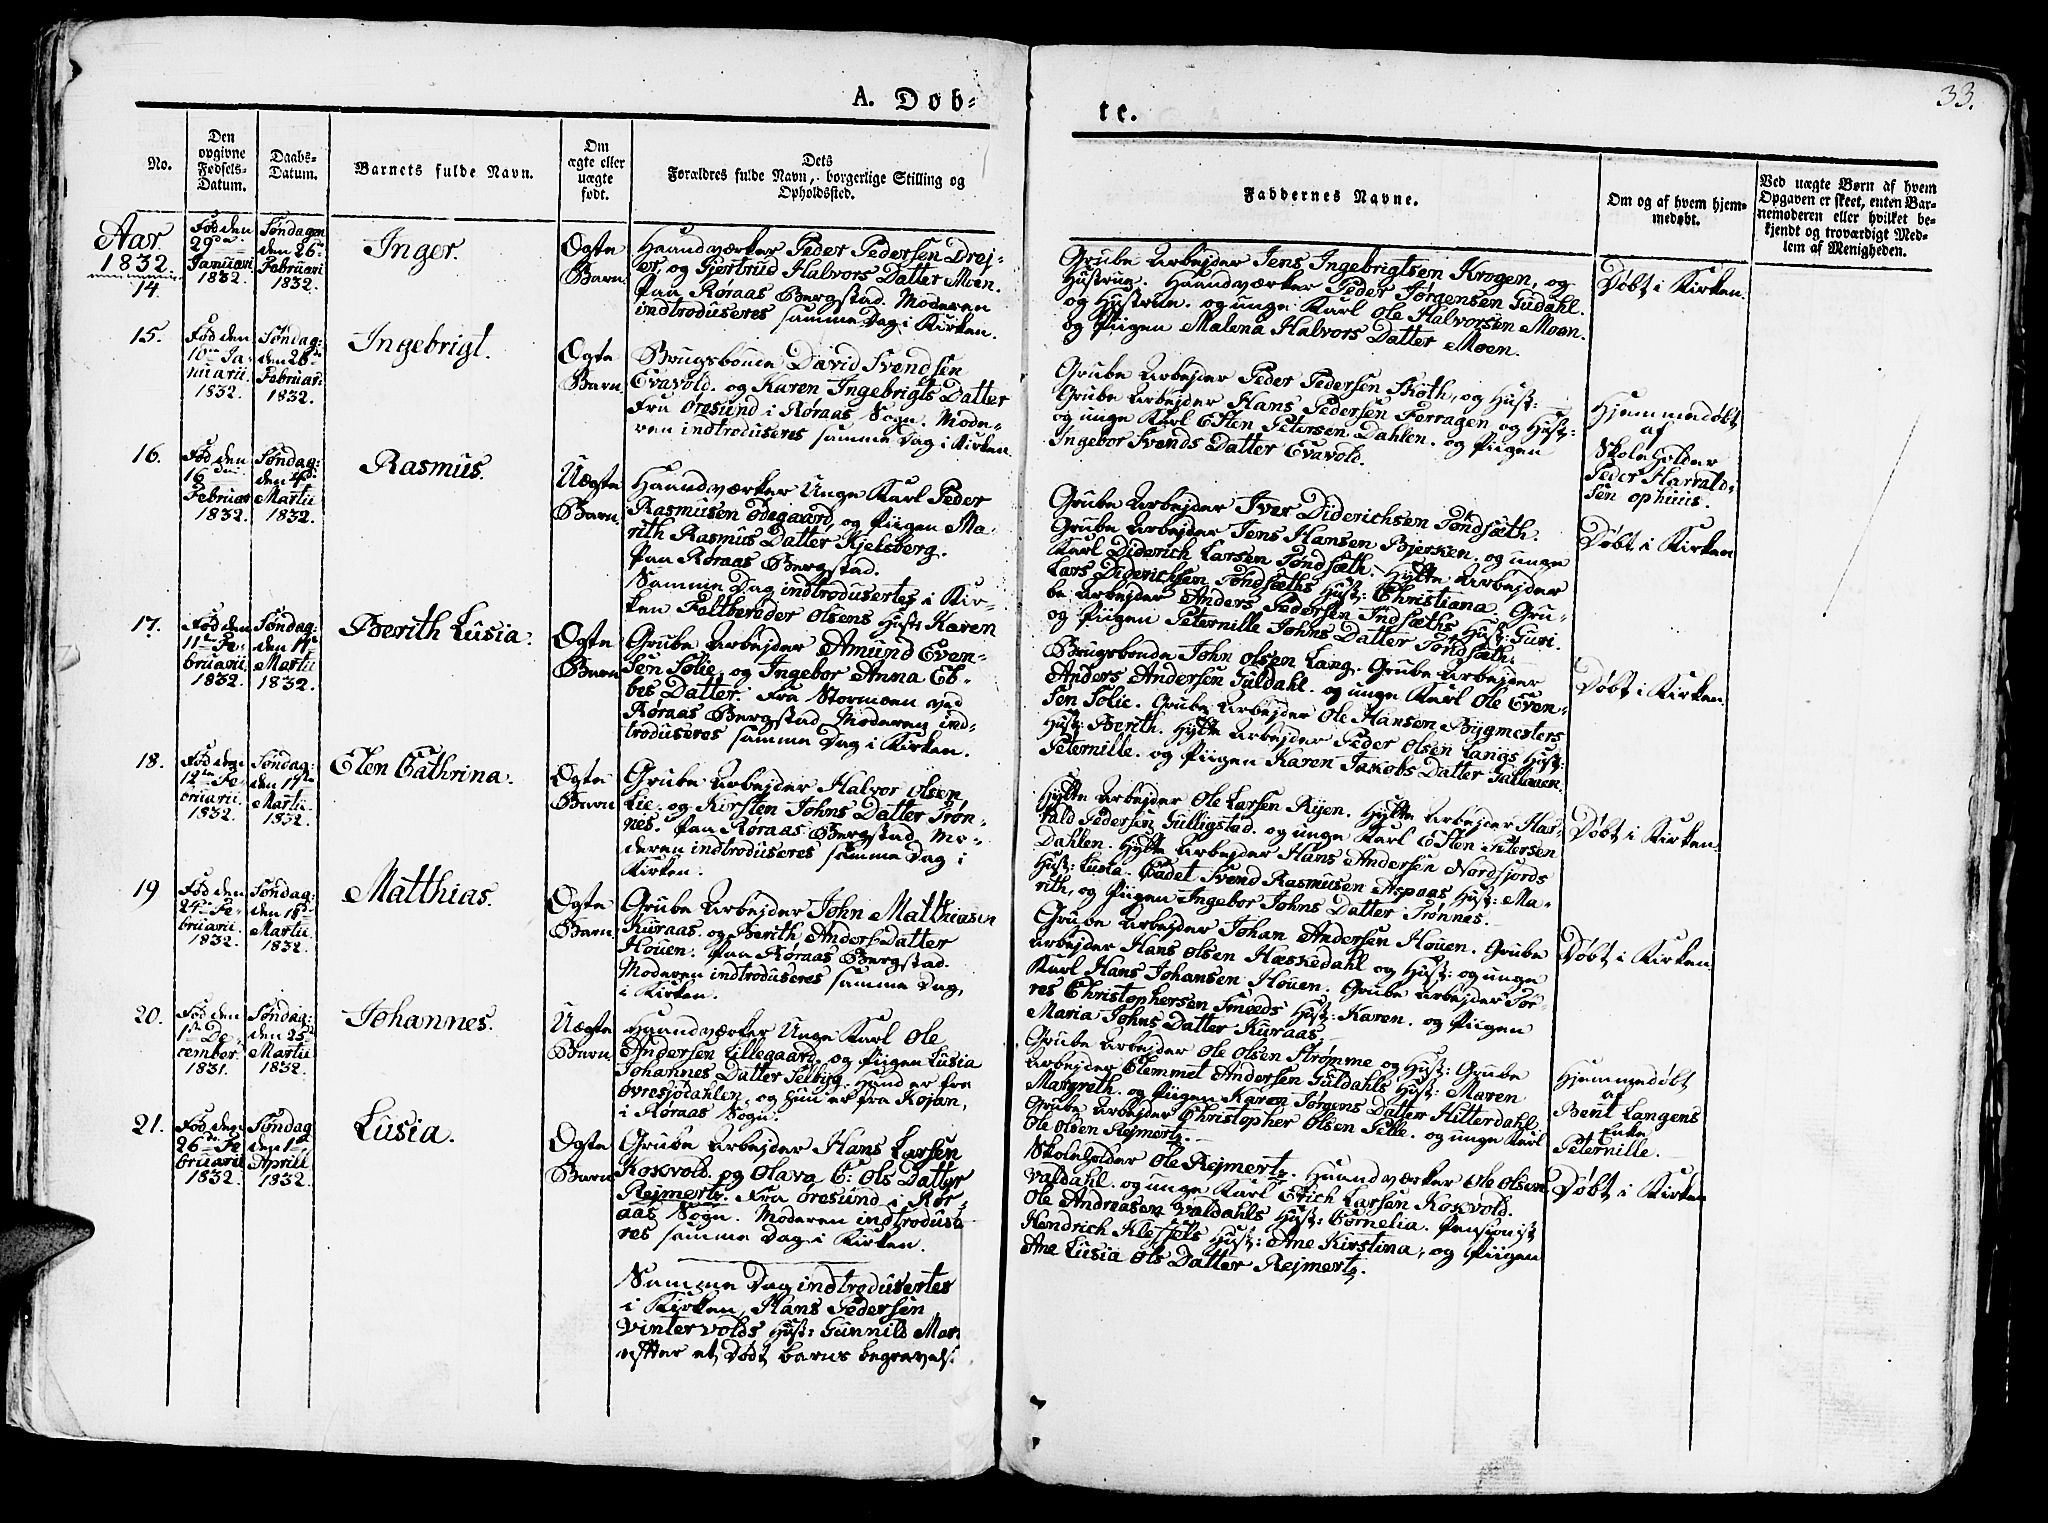 33.
A. Døb-
te.
No.
Den opgivne Fødsels-Datum.
Daabs-Datum.
Barnets fulde Navn.
Om ægte eller uægte født.
Dets Forældres fulde Navn, borgerlige Stilling og Opholdssted.
Faddernes Navne.
Om og af hvem hjemmedøbt.
Ved uægte Børn af hvem Opgaven er skeet, enten Barnemoderen eller hvilket bekjendt og troværdigt Medlem af Menigheden.
Aar 1832.
14.
Fød den 29de Januari 1832.
Søndagen den 26de Februari 1832.
Inger.
Ægte Barn.
Haandværker Peder Pedersen Drej-
er, og Gjertrud Halvors Datter Moen.
Paa Røraas Bergstad. Moderen
indtroduseres samme Dag i Kirken.
Grube Arbejder Jens Ingebrigtsen Krogen, og
Hustrue. Haandværker Peder Jørgensen Guldahl.
og Hustrue. og unge Karl Ole Halvorsen Moen.
og Piigen Malena Halvors Datter Moen.
Døbt i Kirken.
15.
Fød den 10de Januarii 1832.
Søndag: den 26de Februar: 1832.
Ingebrigt.
Ægte Barn.
Brugsbonde David Svendsen
Evavold. og Karen Ingebrigts Datter
Fra Øresund i Røraas Sogn. Mode-
ren indtroduseres samme Dag i Kirken.
Grube Arbejder Peder Pedersen Skøth, og Hust:
Grube Arbejder Hans Pedersen Forragen og Hust:
og unge Karl Esten Petersen Dahlen. og Piigen
Ingebor Svends Datter Evavold.
Hjemmedøbt
af
Skoleholder
Peder Harrald-
sen ophuus.
16.
Fød den 16de Februar 1832.
Søndag: den 4de Martii 1832.
Rasmus.
Uægte Barn.
Haandværker Unge Karl Peder
Rasmusen Ødegaard, og Piigen Ma-
rith Rasmus Datter Kjelsberg.
Paa Røraas Bergstad.
Samme Dag indtrodusertes i Kir-
ken Feltbereder Olsens Hust: Karen
Grube Arbejder Iver Diderichsen Tøndsæth.
Grube Arbejder Jens Hansen Bjerken. og unge
Karl Diderich Larsen Tøndsæth. Hytte Arbejder
Lars Diderichsen Tøndsæths Hust: Christiana. Gru-
be Arbejder Anders Pedersen Indsæths Hust: Guri.
og Piigen Peternille Johns Datter Tøndsæth.
Døbt i Kirken
17.
Fød den 11te Februarii 1832.
Søndag: den 11te Martii 1832.
Berith Lusia.
Ægte Barn
Grube Arbejder Amund Even-
sen Solie, og Ingebor Anna Eb-
bes Datter. Fra Stormoen ved
Røraas Bergstad. Moderen ind-
troduseres samme Dag i Kirken.
Brugsbonde John Olsen Lang. Grube Arbejder
Anders Andersen Guldahl. og unge Karl Ole Even-
sen Solie. Grube Arbejder Ole Hansen Bygmesters
Hust: Berith. Hytte Arbejder Peder Olsen Langs Hust:
Peternille. og Piigen Karen Jakobs Datter Galtaaen
Døbt i Kirken
18.
Fød den 12te Februarii 1832.
Søndag: den 11te Martii 1832.
Elen Cathrina.
Ægte Barn
Grube Arbejder Halvor Olsen
Lie. og Kirsten Johns Datter Trøn-
nes. Paa Røraas Bergstad. Mo-
deren indtroduseres samme Dag i
Kirken.
Hytte Arbejder Ole Larsen Ryen. Hytte Arbejder Har-
rald Pedersen Gulligstad. og unge Karl Esten Petersen
Dahlen. Hytte Arbejder Hans Andersen Nordfjords
Hust: Lusia. Cadet Svend Rasmusen Aspaas, Hust: Ma-
rith, og Piigen Ingebor Johns Datter Trønnes.
Døbt i Kirken.
19
Fød den 24de Februarii 1832.
Søndag: den 18de Martii 1832.
Matthias.
Ægte Barn.
Grube Arbejder John Matthiasen
Kuraas. og Berith Anders-Datter
Houen. Paa Røraas Bergstad.
Moderen indtroduseres samme Dag,
i Kirken.
Grube Arbejder Johan Andersen Houen. Grube
Arbejder Hans Olsen Hæskedahl og Hust: og unge
Karl Hans Johansen Houen. Grube Arbejder Tor-
res Christophersen Smeeds Hust: Karen. og Piigen
Maria Johns Datter Kuraas.
Døbt i Kirken
20.
Fød den 1ste December. 1831.
Søndag: den 25de Martii 1832.
Johannes.
Uægte Barn
Haandværker Unge Karl Ole
Andersen Lillegaard. og Piigen Lusia
Johannes Datter Selbyg. Hand er fra
øvresjødahlen, og hun er fra Kojan,
i Røraas Sogn.
Grube Arbejder Ole Olsen Strømme og Hust: Grube
Arbejder Clemmet Andersen Guldahls Hust: Maren
Margreth. og Piigen Karen Jørgens Datter Hitterdahl.
Grube Arbejder Christopher Olsen Pelle. og unge Karl
Ole Olsen Rejmertz.
Hjemmedøbt
af
Bent Langens
Enke
Peternille.
21.
Fød den 26de Februarii 1832.
Søndag den 1ste Aprili 1832.
Lusia.
Ægte Barn
Grube Arbejder Hans Larsen
Koxvold. og Olava C: Ols Datter
Rejmertz. Fra Øresund i Rør-
aas Sogn. Moderen indtroduse-
res samme Dag i Kirken.
Skoleholder Ole Rejmertz. Haandværker Ole Olsen
Valdahl. og unge Karl Erich Larsen Koxvold.
Ole Andreasen Valdahls Hust: Cornelia. Pensionist
Hendrich Kleffels Hust: Ane Kirstina, og Piigen
Ane Lusia Ols Datter Rejmertz.
Døbt i Kirken
Samme Dag indtrodusertes
i Kirken, Hans Pedersen
Vintervolds Hust: Gunnild Mar:
efter et Dødt barns begravels: